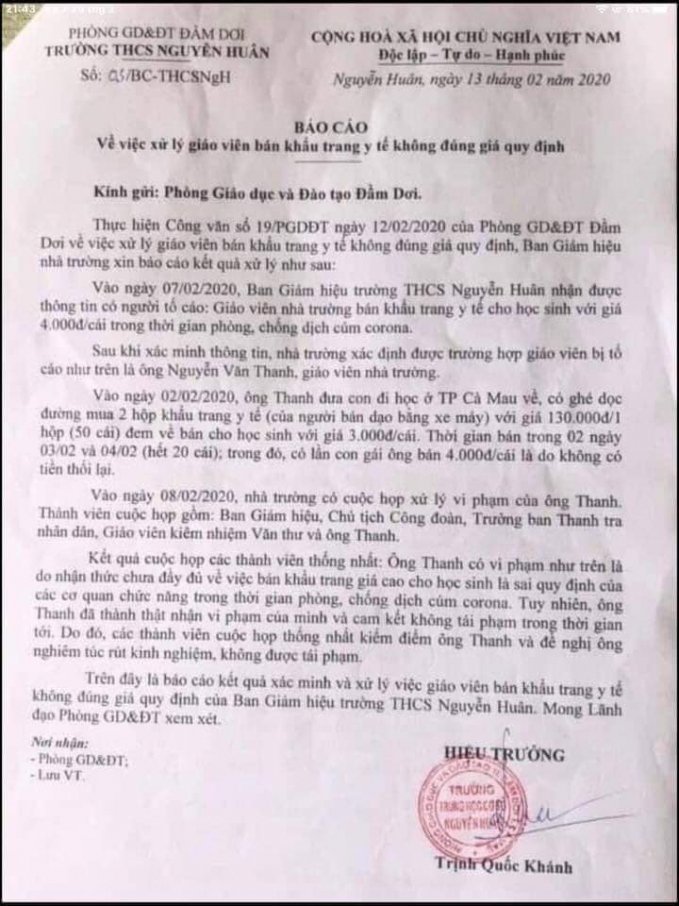 21:43
81%
PHÒNG GD&ĐT ĐẦM DƠI
TRƯỜNG THCS NGUYỄN HUÂN
Số: 05/BC-THCSNgH
CỘNG HOÀ XÃ HỘI CHỦ NGHĨA VIỆT NAM
Độc lập – Tự do – Hạnh phúc
Nguyễn Huân, ngày 13 tháng 02 năm 2020
BÁO CÁO
Về việc xử lý giáo viên bán khẩu trang y tế không đúng giá quy định
Kính gửi: Phòng Giáo dục và Đào tạo Đầm Dơi.
Thực hiện Công văn số 19/PGDĐT ngày 12/02/2020 của Phòng GD&ĐT Đầm
Dơi về việc xử lý giáo viên bán khẩu trang y tế không đúng giá quy định, Ban Giám hiệu
nhà trường xin báo cáo kết quả xử lý như sau:
Vào ngày 07/02/2020, Ban Giám hiệu trường THCS Nguyễn Huân nhận được
thông tin có người tố cáo: Giáo viên nhà trường bán khẩu trang y tế cho học sinh với giá
4.000đ/cái trong thời gian phòng, chống dịch cúm corona.
Sau khi xác minh thông tin, nhà trường xác định được trường hợp giáo viên bị tố
cáo như trên là ông Nguyễn Văn Thanh, giáo viên nhà trường.
Vào ngày 02/02/2020, ông Thanh đưa con đi học ở TP Cà Mau về, có ghé dọc
đường mua 2 hộp khẩu trang y tế (của người bán dạo bằng xe máy) với giá 130.000đ/1
hộp (50 cái) đem về bán cho học sinh với giá 3.000đ/cái. Thời gian bán trong 02 ngày
03/02 và 04/02 (hết 20 cái); trong đó, có lần con gái ông bán 4.000đ/cái là do không có
tiền thối lại.
Vào ngày 08/02/2020, nhà trường có cuộc họp xử lý vi phạm của ông Thanh.
Thành viên cuộc họp gồm: Ban Giám hiệu, Chủ tịch Công đoàn, Trưởng ban Thanh tra
nhân dân, Giáo viên kiêm nhiệm Văn thư và ông Thanh.
Kết quả cuộc họp các thành viên thống nhất: Ông Thanh có vi phạm như trên là
do nhận thức chưa đầy đủ về việc bán khẩu trang giá cao cho học sinh là sai quy định của
các cơ quan chức năng trong thời gian phòng, chống dịch cúm corona. Tuy nhiên, ông
Thanh đã thành thật nhận vi phạm của mình và cam kết không tái phạm trong thời gian
tới. Do đó, các thành viên cuộc họp thống nhất kiểm điểm ông Thanh và đề nghị ông
nghiêm túc rút kinh nghiệm, không được tái phạm.
Trên đây là báo cáo kết quả xác minh và xử lý việc giáo viên bán khẩu trang y tế
không đúng giá quy định của Ban Giám hiệu trường THCS Nguyễn Huân. Mong Lãnh
đạo Phòng GD&ĐT xem xét.
Nơi nhận:
- Phòng GD&ĐT;
- Lưu VT.
HIỆU TRƯỞNG
TRƯỜNG
TRUNG HỌC CƠ SỞ
NGUYỄN HUÂN
Trịnh Quốc Khánh